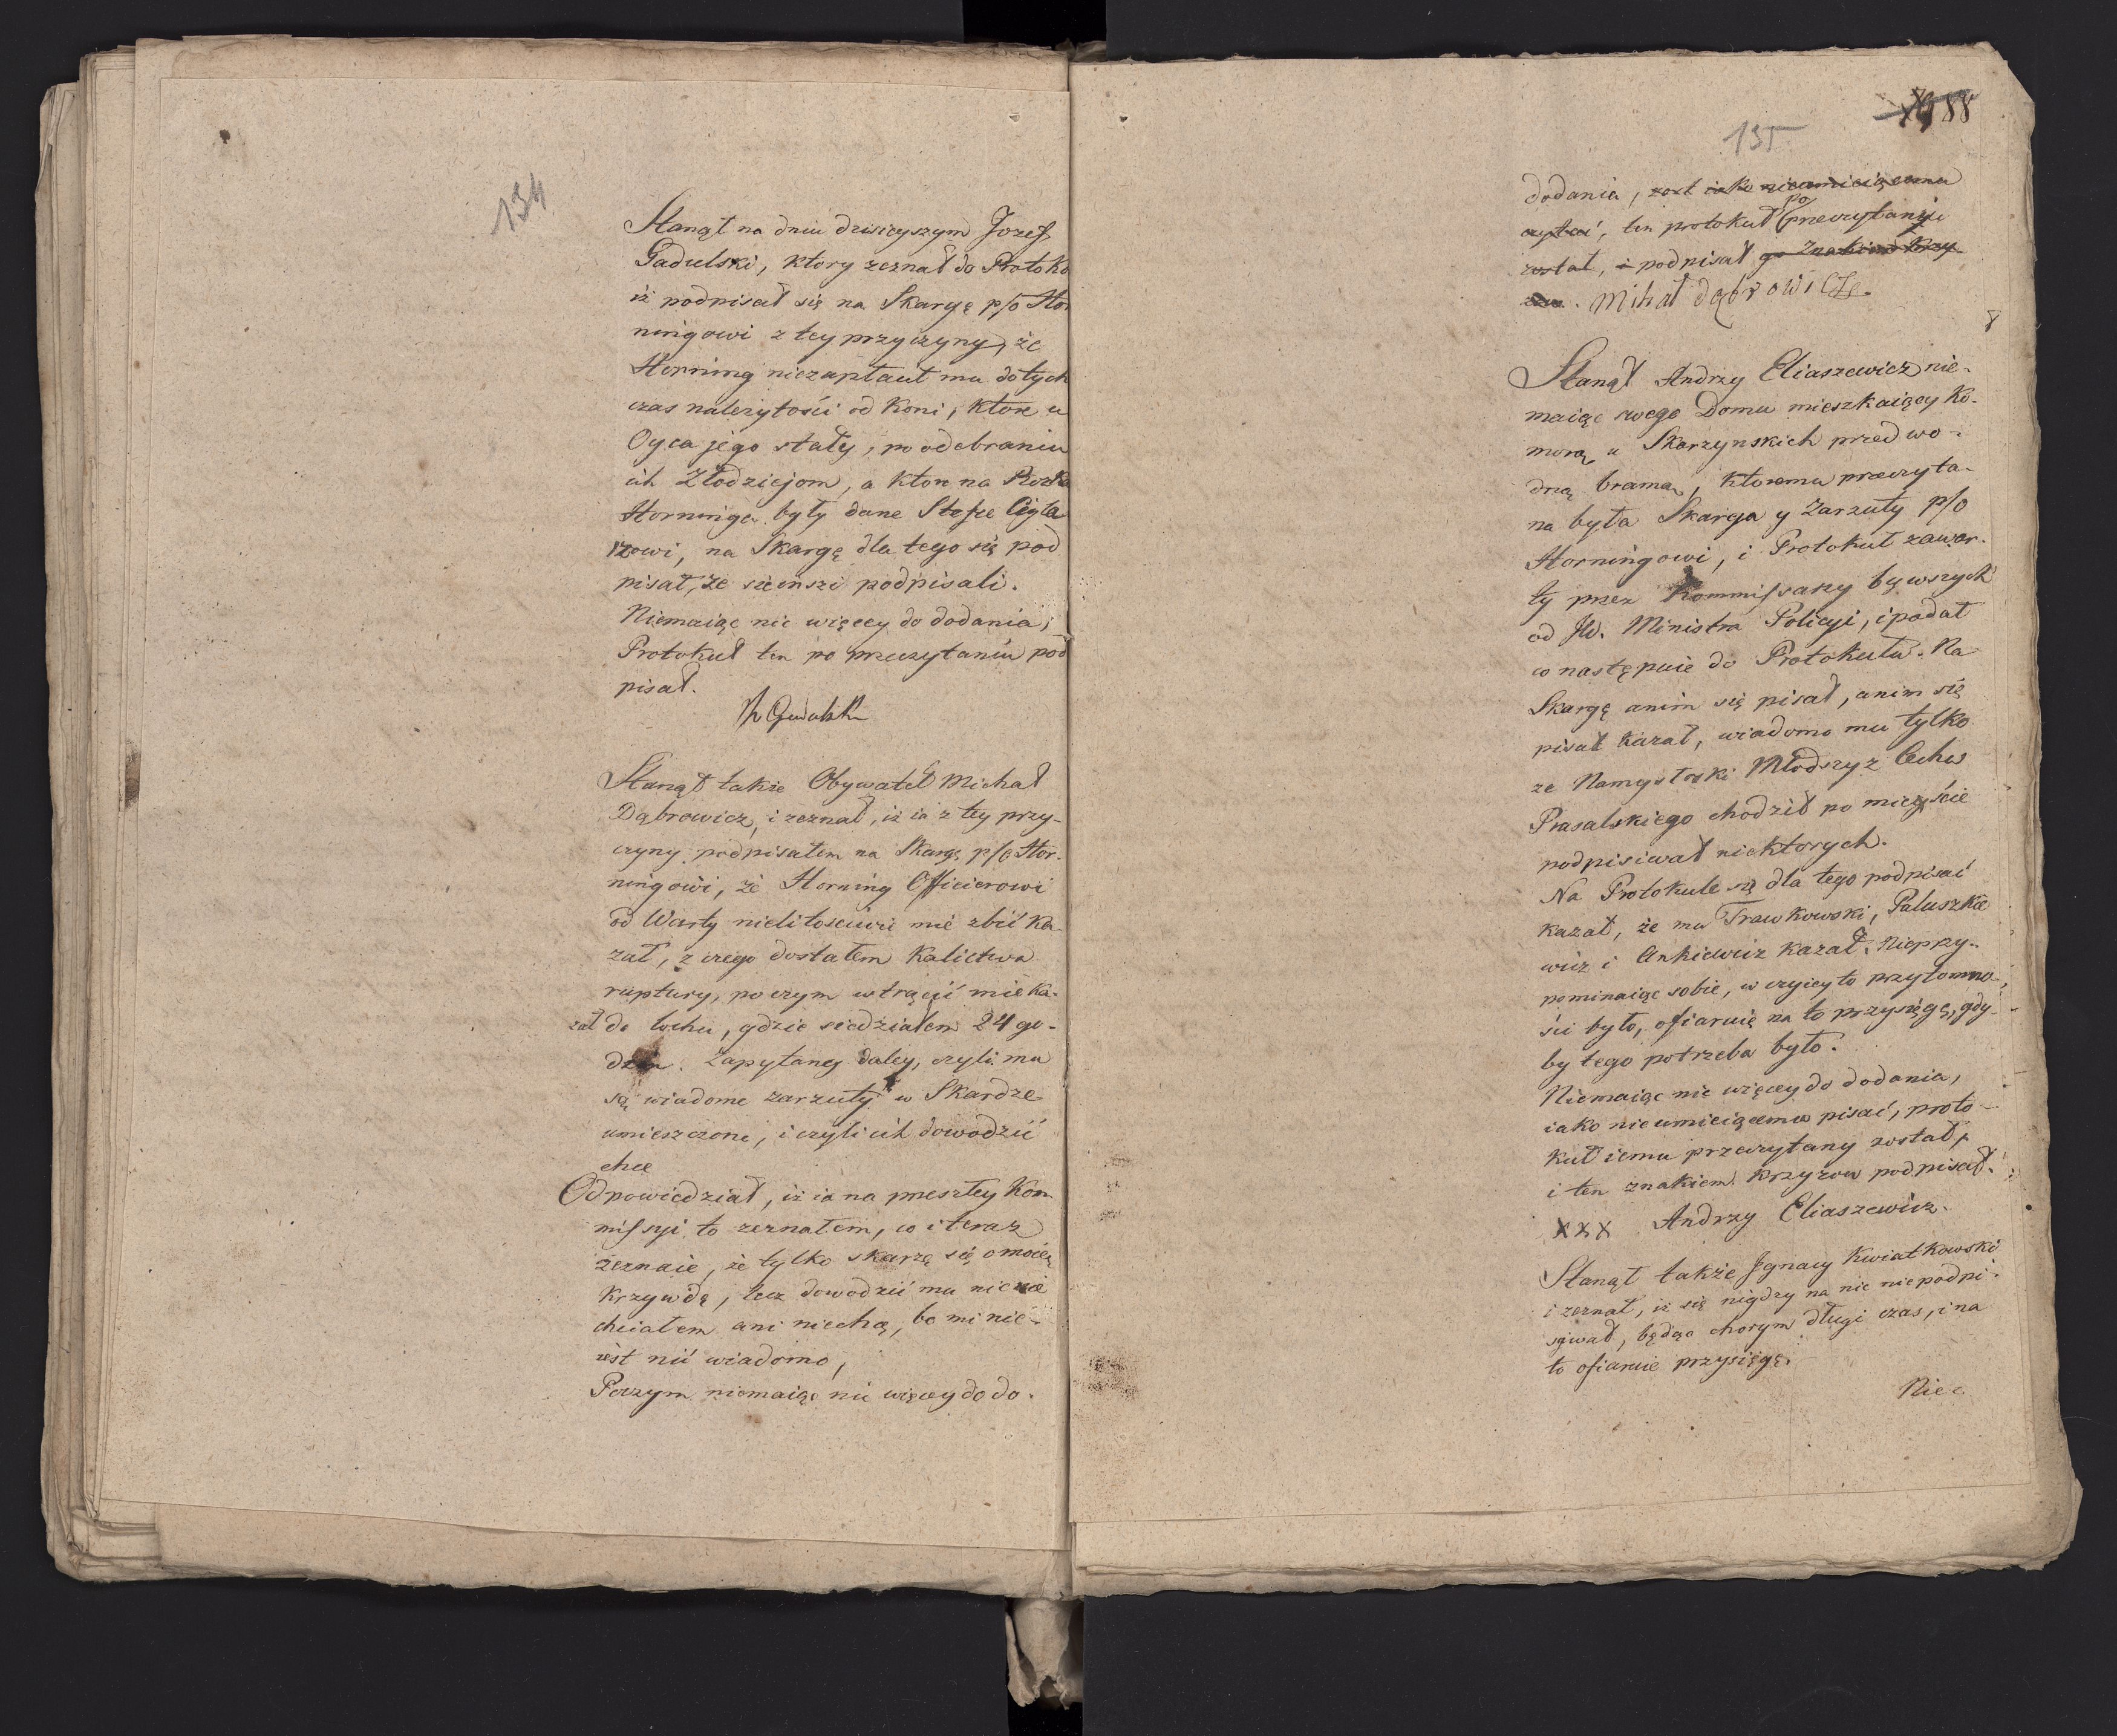 134
Stanął na dniu dzisieyszym Jozef
Gadulski, ktory zeznał do Protoko
iż podpisał się na Skargę p/o Hor
ningowi z tey przyczyny, że
Horning niezapłacił mu dotych
czas należytości od koni, ktore u
Oyca jego stały, po odebraniu
ich Złodziejom, a ktore na Rozka
Horninga były dane Stefce Cigla
rzowi, na Skargę dla tego się pod
pisał, że sie inszi podpisali.
Niemaiąc nic więcey do dodania,
Protokuł ten po przeczytaniu pod
pisał.
Stanął także Obywatel Michał
Dąbrowicz, i zeznał, iż ia z tey przy-
czyny podpisałem na Skargę p/o Hor-
ningowi, że Horning Officierowi
od Warty nielitościwie mie zbić ka-
zał, z czego dostałem kalictwa
ruptury, po czym wtrącić mie ka-
zał do lochu, gdzie siedziałem 24 go-
dzin. Zapytany daley, czyli mu
są wiadome zarzuty w Skardze
umieszczone, i czyli ich dowodzić
chce
Odpowiedział, iż ia na preszłey Kom
missyi to zeznałem, co i teraz
zeznaie, że tylko skarzę się o moię
krzywdę, lecz dowodzić mu nic nie
chciałem ani niechcę, bo mi nie-
iest nic wiadomo,
Poczym niemaiąc nic więcey do do-
88
135
dodania, iako nieumieiącemu
czytać, ten protokuł po preczytaniu
został, i podpisał go Znakiem Krzy
. Mihał Dąbrowicz
8
Stanął Andrzy Eliaszewicz nie-
maiąc swego Domu mieszkaiący Ko-
morą u Skarzynskich przed wo-
dną bramą, ktoremu preczyta-
na była Skarga y Zarzuty p/o
Horningowi, i Protokuł zawar-
ty przez Kommissarzy bywszych
od JW. Ministra Policyi, i podał
co następuie do Protokułu. Na
Skargę anim się pisał, anim się
pisał kazał, wiadomo mu tylko
ze Namysłoski Młodszy z Cechu
Prasalskiego chodził po mieyscie
podpisiwał niektorych.
Na Protokule się dla tego podpisać
kazał, że mu Trawkowski, Paluszkie
wicz i Ankiewicz kazał. Nieprzy-
pominaiąc sobie, w czyiey to przytomno-
ści było, ofiaruię na to przysięgę, gdy-
by tego potrzeba było.
Niemaiąc nic więcey do dodania,
iako nieumieiącemu pisać, proto-
kuł iemu przeczytany został,
i ten znakiem krzyzow podpisał.
xxx Andrzy Eliaszewicz.
Stanął także Jgnacy Kwiatkowski
i zeznał, iż się nigdzy na nic niepodpi-
sywał, będąc chorym długi czas, i na
to ofiaruie przysięgę.
Nie